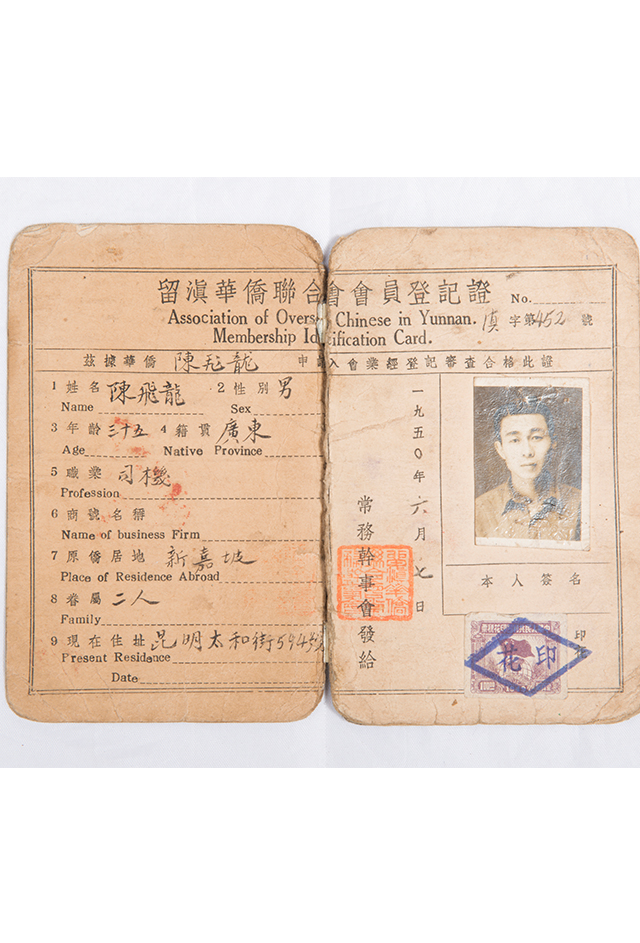 留滇華僑聯合會會員登記證
No.
Association of Overse Chinese in Yunnan. 滇字第452號
Membership Id ification Card.
茲據華僑 陳飛龍 申 入會業經登記審查合格此證
1 姓名 陳飛龍 2 性別 男
Name Sex
3 年齡 三十五 4 籍貫 廣東
Age Native Province
5 職業 司機
Profession
6 商號名稱
Name of business Firm
7 原僑居地 新嘉坡
Place of Residence Abroad
8 眷屬 二人
Family
9 現在住址 昆明太和街594號
Present Residence
Date
一九五〇年六月七日
常務幹事會發給
本人簽名
印花
印花